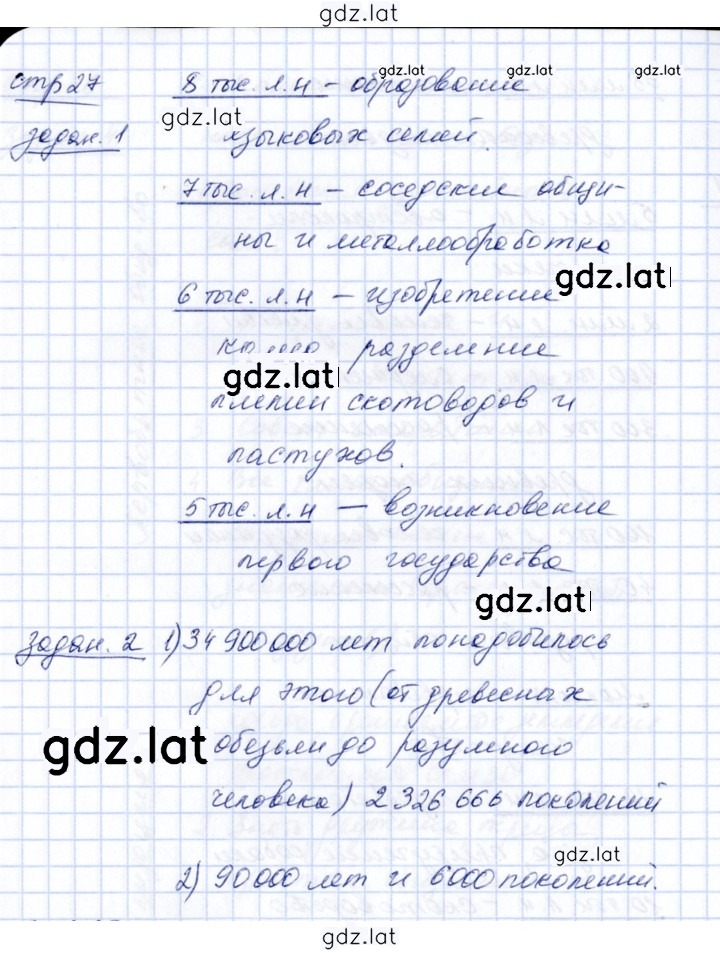 gdz.lat
стр 27 8 тыс. л. н – образование gdz.lat
gdz.lat
задан. 1 языковых семей.
7 тыс. л. н – соседские общи-
ны и металлообработка
gdz.lat
6 тыс. л. н – изобретение
разделение
gdz.lat
племен скотоводов и
пастухов.
5 тыс. л. н – возникновение
первого государства
gdz.lat
задан. 2 1) 34 900 000 лет понадобилось
для этого (от древесных
gdz.lat
обезьян до разумного
человека) 2 326 666 поколений
gdz.lat
2) 90 000 лет и 6000 поколений.
gdz.lat